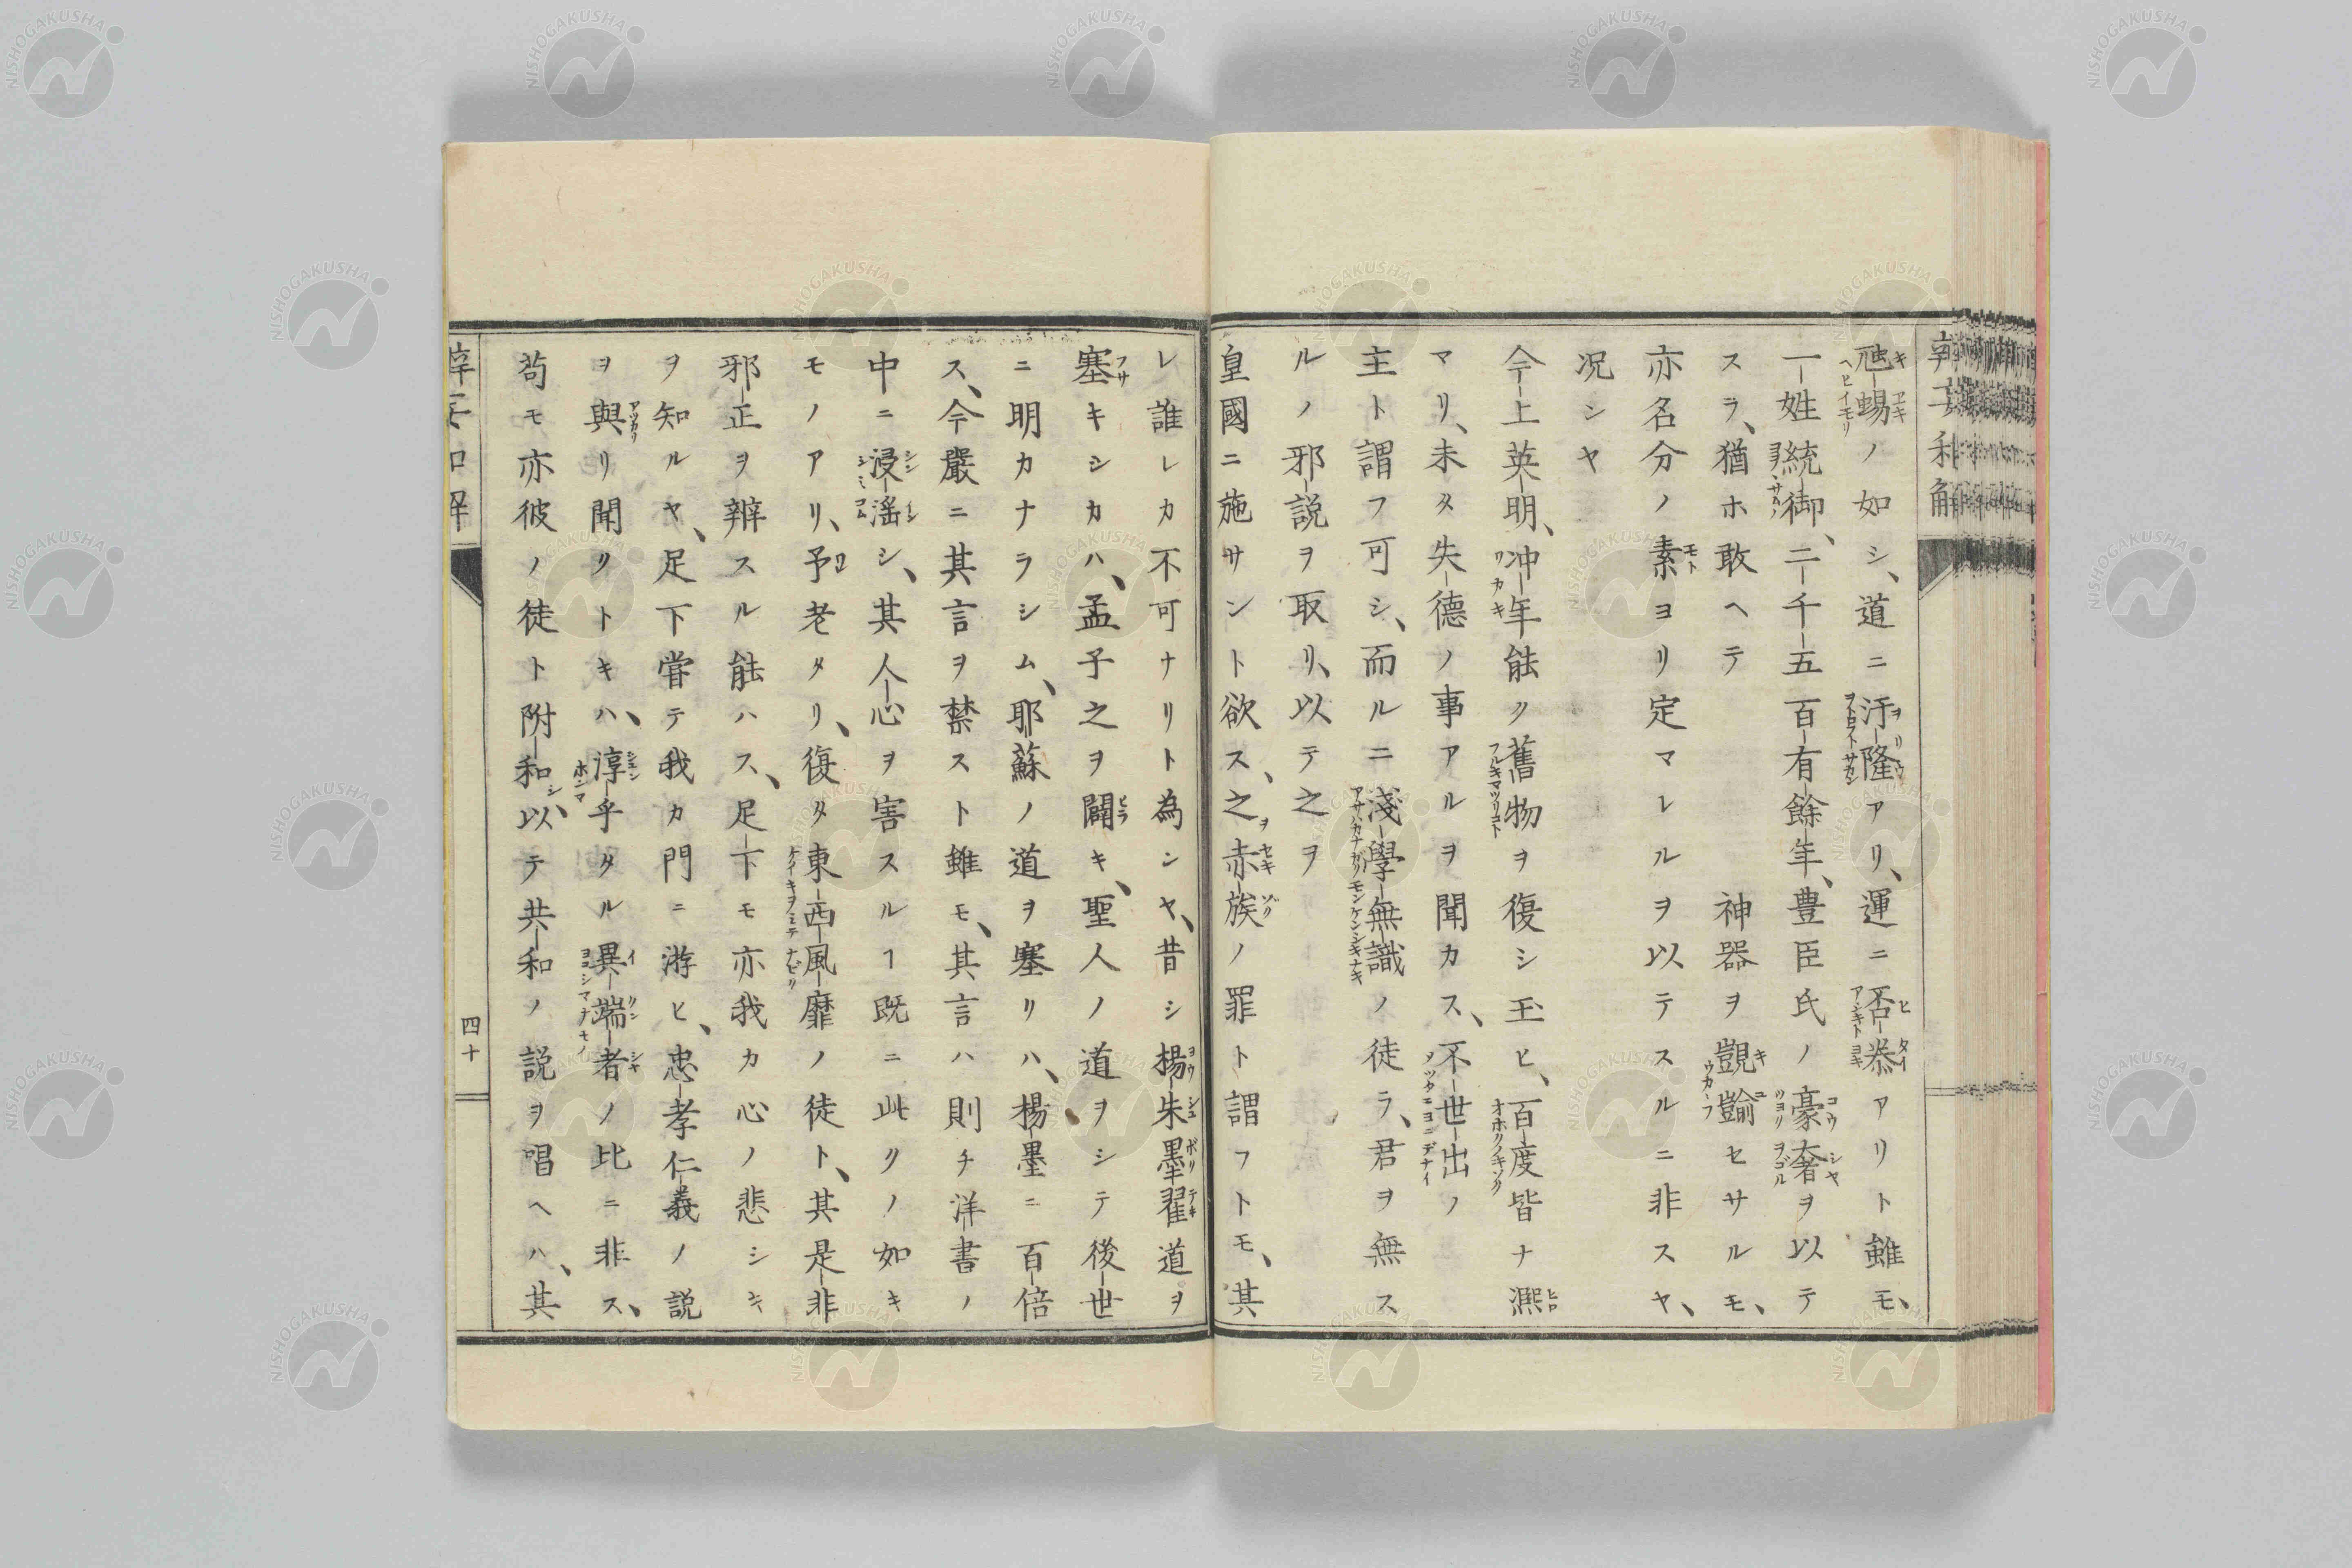 虺蜴ノ如シ、道ニ汙隆アリ、運ニ否泰アリト雖モ、
一姓統御、二千五百有餘年、豊臣氏ノ豪奢ヲ以テ
スラ、猶ホ敢ヘテ
神器ヲ覬覦セサルモ、
亦名分ノ素ヨリ定マレルヲ以テスルニ非スヤ、
况シヤ
今上英明、冲年能ク舊物ヲ復シ玉ヒ、百度皆ナ凞
マリ、未タ失德ノ事アルヲ聞カス、不世出ノ
主ト謂フ可シ、而ルニ淺學無識ノ徒ラ、君ヲ無ス
ルノ邪説ヲ取リ、以テ之ヲ
皇國ニ施サント欲ス、之ヲ赤族ノ罪ト謂フトモ、其
レ誰レカ不可ナリト為ンヤ、昔シ楊朱墨翟道ヲ
塞キシカハ、孟子之ヲ闢キ、聖人ノ道ヲシテ後世
ニ明カナラシム、耶蘇ノ道ヲ塞リハ、楊墨ニ百倍
ス、今嚴ニ其言ヲ禁スト雖モ、其言ハ則チ洋書ノ
中ニ浸滛シ、其人心ヲ害スルヿ既ニ此クノ如キ
モノアリ、予老タリ、復タ東西風靡ノ徒ト、其是非
邪正ヲ辨スル能ハス、足下モ亦我カ心ノ悲シキ
ヲ知ルヤ、足下嘗テ我カ門ニ游ヒ、忠孝仁義ノ説
ヲ與リ聞クトキハ、淳乎タル異端者ノ比ニ非ス、
苟モ亦彼ノ徒ト附和シ、以テ共和ノ説ヲ唱ヘハ、其
四十
NISHOGAKUSHA